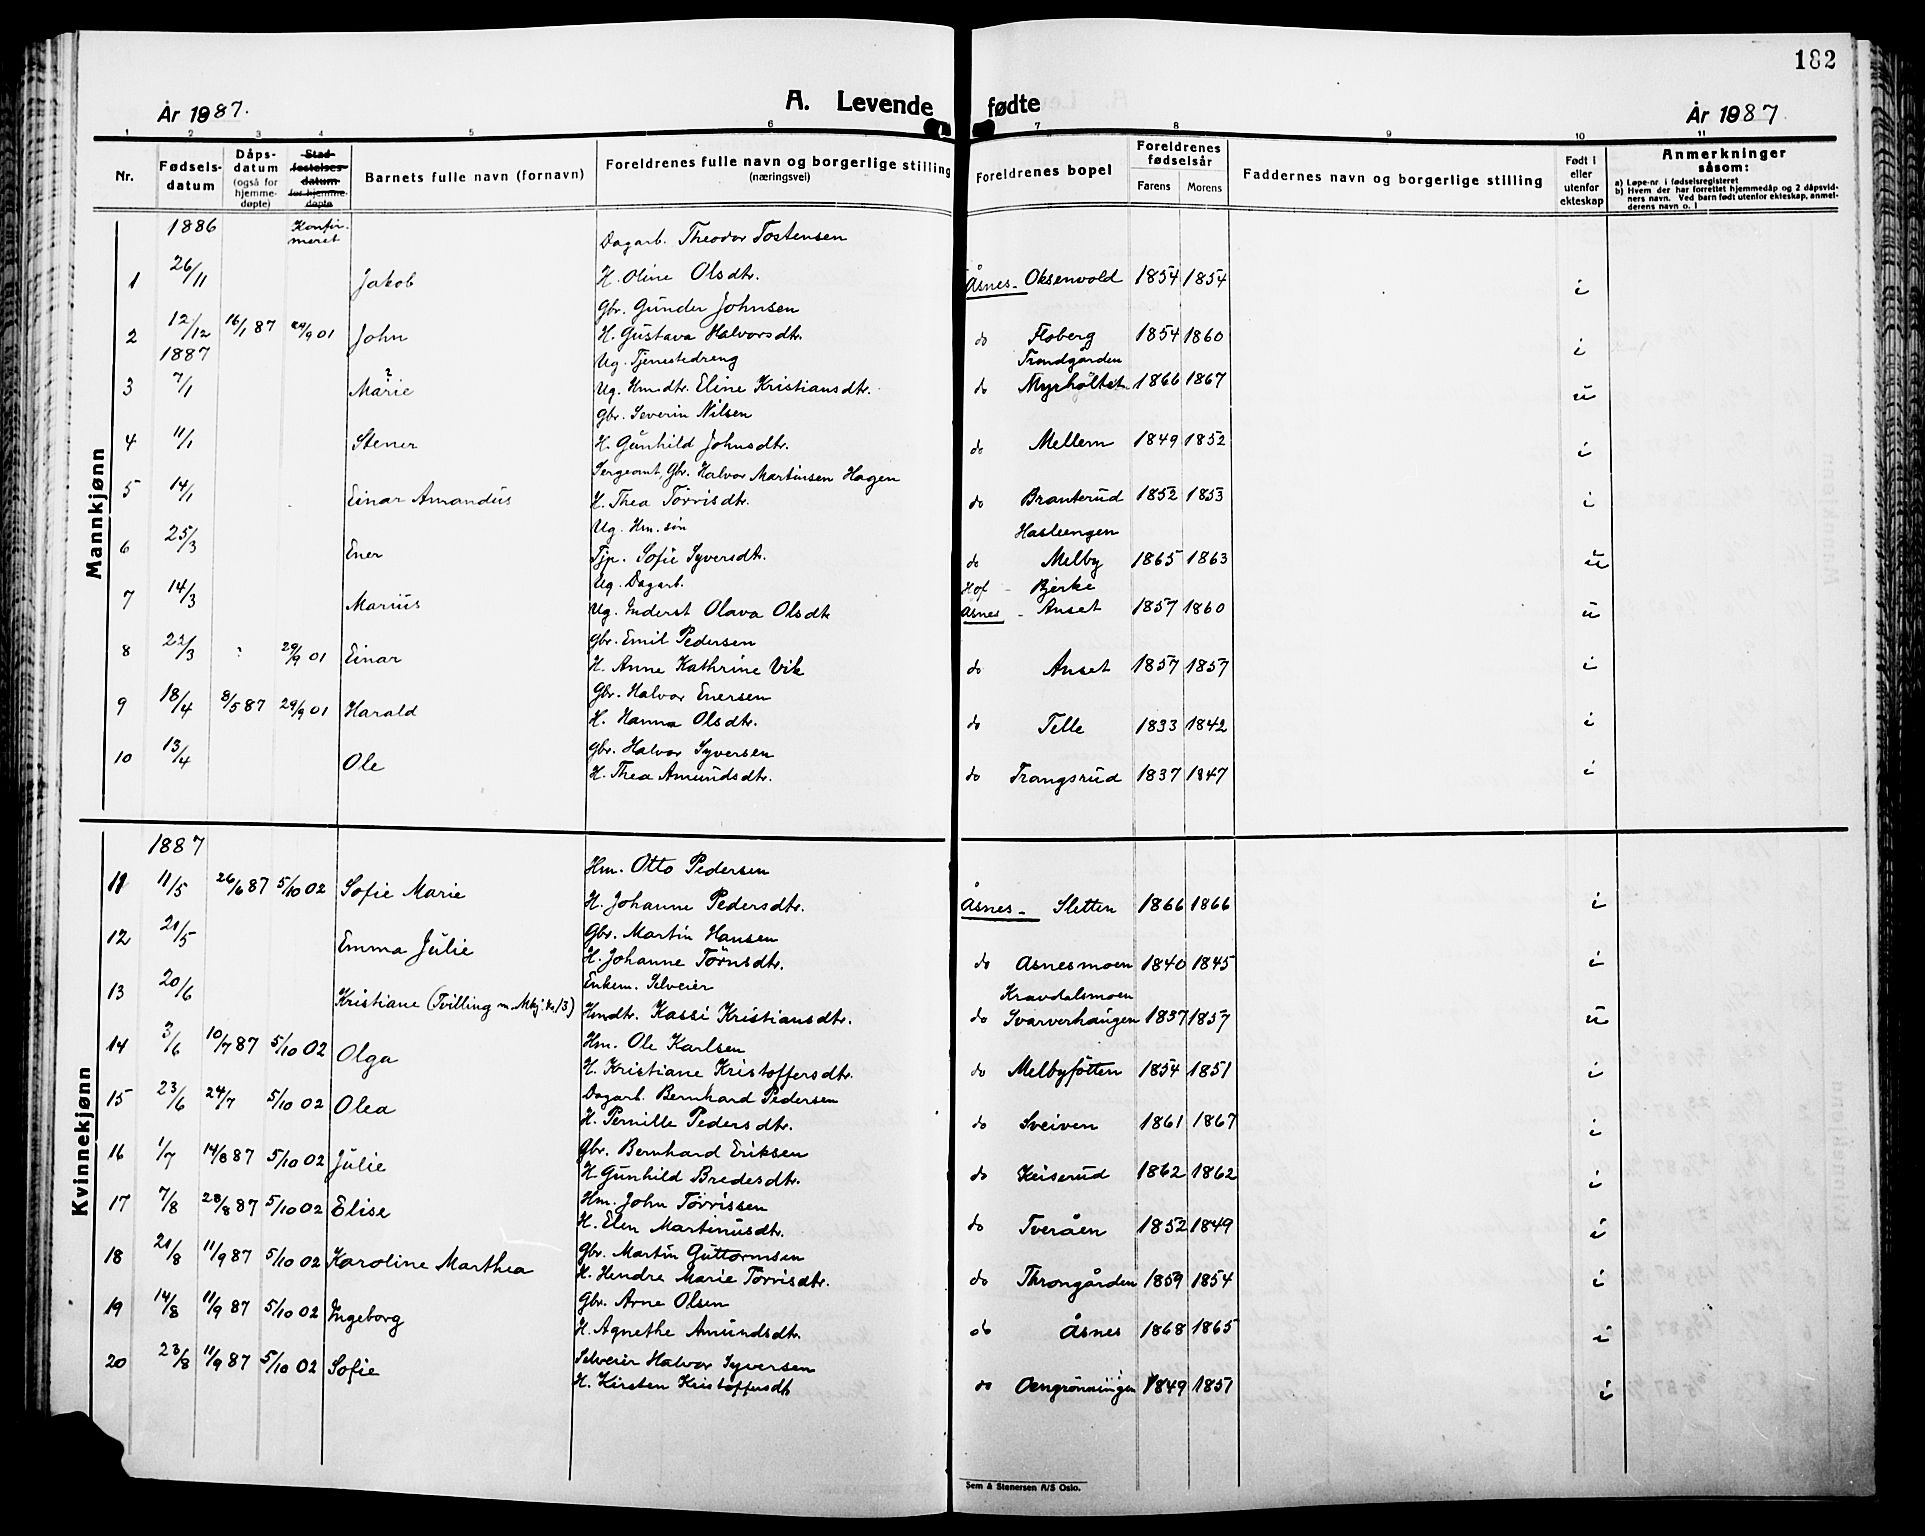 182
År 1987.
A. Levende fødte
År 1987
1 2 3 4 5 6 7 8 9 10 11
Nr.
Fødsels-datum
Dåps-datum (også for hjemme-døpte)
Stad-festelses-datum for hjemme-døpte
Barnets fulle navn (fornavn)
Foreldrenes fulle navn og borgerlige stilling (næringsvei)
Foreldrenes bopel
Foreldrenes fødselsår
Farens Morens
Faddernes navn og borgerlige stilling
Født i eller utenfor ekteskap
Anmerkninger såsom:
a) Løpe-nr. i fødselsregisteret
b) Hvem der har forrettet hjemmedåp og 2 dåpsvid-
ners navn. Ved barn født utenfor ekteskap, anmel-
derens navn o. l
Mannkjønn
1886 Konfir-meret Dagarb. Theodor Tostensen
1 26/11 Jakob H. Oline Olsdtr. Åsnes - Oksenvold 1854 1854 i
Gbr. Gunder Johnsen
2 12/12 16/1 87 29/9 01 John H. Gustava Halvorsdtr. do Floberg 1854 1860 i
1887 Ug. Tjenestedreng Trondgården
3 7/1 Marie ? Ug. Hmdtr. Eline Kristiansdtr. do Myrholtet 1866 1867 u
Gbr. Severin Nilsen
4 11/1 Stener H. Gunhild Johnsdtr. do Mellem 1849 1852 i
Sergeant, Gbr. Halvor Martinsen Hagen
5 14/1 Einar Amandus H. Thea Torrisdtr. do Branterud 1852 1853 i
Ug. Hm. søn Haslengen
6 25/3 Ener Tjp. Sofie Syversdtr. do Melby 1865 1863 u
Ug. Dagarb. Hof - Bjerke
7 14/3 Marius Ug. Inderst Olava Olsdtr Åsnes - Anset 1857 1860 u
Gbr. Emil Pedersen
8 22/3 29/9 01 Einar H. Anne Kathrine Vik do Anset 1857 1857 i
Gbr. Halvor Enersen
9 18/4 8/5 87 29/9 01 Harald H. Hanna Olsdtr. do Telle 1833 1842 i
Gbr. Halvor Syversen
10 13/4 Ole H. Thea Amundsdtr. do Trangsrud 1837 1847 i
Kvinnekjønn
1887
Hm. Otto Pedersen
11 11/5 26/6 87 5/10 02 Sofie Marie H. Johanne Pedersdtr. Åsnes - Sletten 1866 1866 i
Gbr. Martin Hansen
12 21/5 Emma Julie H. Johanne Törrisdtr. do Asnesmoen 1840 1845 i
Enkem. Selveier Kravdalsmoen
13 20/6 Kristiane (Tvilling m. Mkj. No 13) Hmdtr. Kassi Kristiansdtr. do Svarverhaugen 1837 1857 u
Hm. Ole Karlsen
14 3/6 10/7 87 5/10 02 Olga H. Kristiane Kristoffersdtr. do Melbyfotten 1854 1851 i
Dagarb. Bernhard Pedersen
15 23/6 24/7 5/10 02 Olea H. Pernille Pedersdtr. do Sveiven 1861 1867 i
Gbr. Bernhard Eriksen
16 1/7 14/8 87 5/10 02 Julie H Gunhild Bredesdtr. do Keiserud 1862 1862 i
Hm. John Torrissen
17 7/8 28/8 87 5/10 02 Elise H. Elen Martinusdtr. do Tveråen 1852 1849 i
Gbr. Martin Guttormsen
18 21/8 11/9 87 5/10 02 Karoline Marthea H. Hendre Marie Torrisdtr. do Throngården 1859 1854 i
Gbr. Arne Olsen
19 14/8 11/9 87 5/10 02 Ingeborg H. Agnethe Amundsdtr. do Åsnes 1868 1865 i
Selveier Halvor Syversen
20 23/8 11/9 87 5/10 02 Sofie H. Kirsten Kristoffersdt do Oengrønningen 1849 1851 i
Sem & Stenersen A/S Oslo.